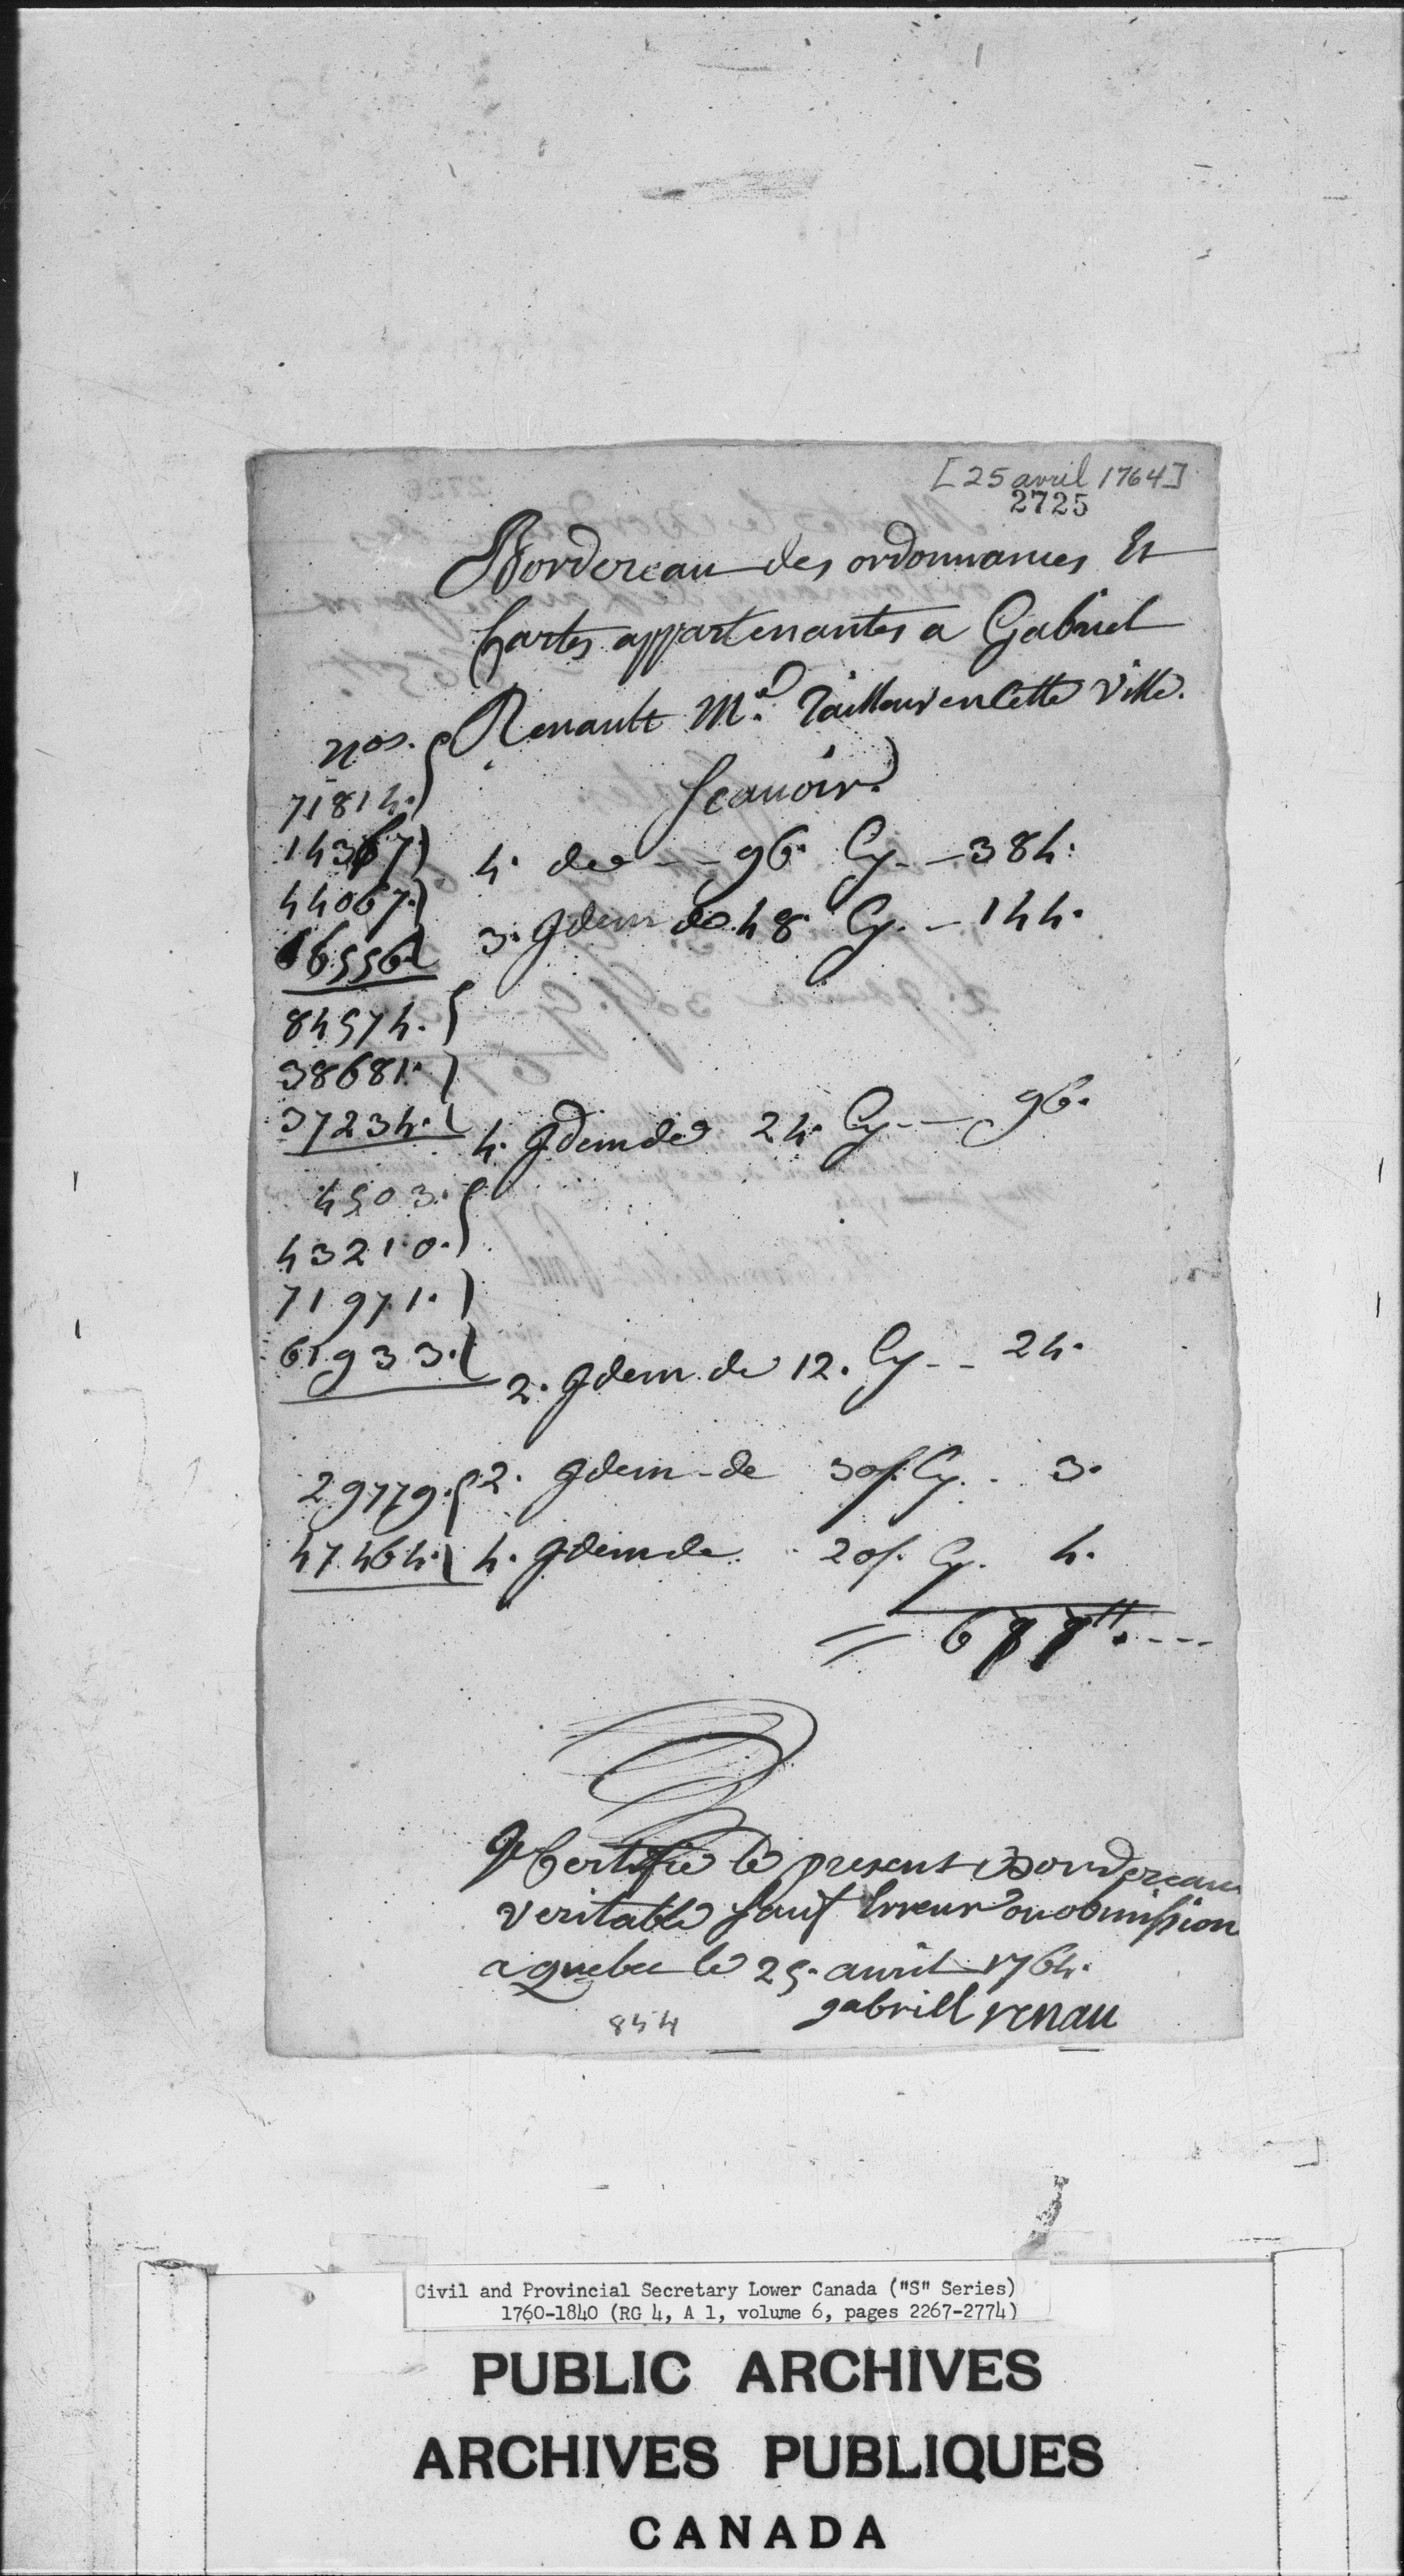 [25 avril 1764]
2725
Bordereau des ordonnances Et
Cartes appartenantes a Gabriel
Renault Md. Tailleur en Cette Ville.
Scauoir
nos.
71814.
14367.
44067.
66556.
4. de -- 96. Cy. - 384.
3. Jdem de 48. Cy. - 144.
84574.
38681.
37234.
4. Jdem de 24. Cy -- 96.
4503.
43210.
71971.
61933.
2. Jdem de 12. Cy -- 24.
29779. 2. Jdem - de 30s. Cy. 3.
47464. 4. Jdem de 20s. Cy. 4.
Je Certifie le present Bordereau
veritable sauf Erreur ou obmission
a quebec le 25. avril 1764.
gabriell renau
854
Civil and Provincial Secretary Lower Canada ("S" Series)
1760-1840 (RG 4, A 1, volume 6, pages 2267-2774)
PUBLIC ARCHIVES
ARCHIVES PUBLIQUES
CANADA